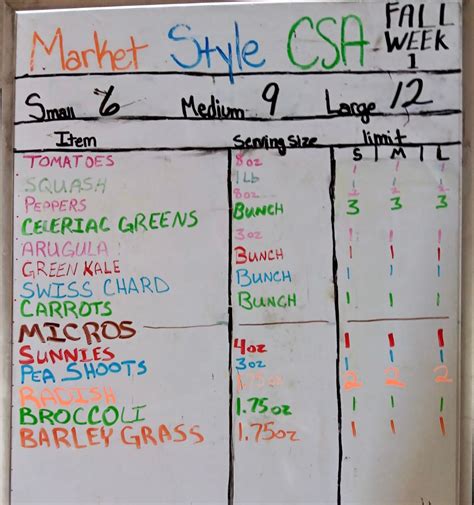 Market Style CSA FALL WEEK 1
Small 6 Medium 9 Large 12
Item Serving Size limit
S M L
TOMATOES 8oz 1 1 1
SQUASH 1lb 1 1 1
PEPPERS 8oz 2 2 2
CELERIAC GREENS BUNCH 3 3 3
ARUGULA 3oz 1 1 1
GREEN KALE BUNCH 1 1 1
SWISS CHARD BUNCH 1 1 1
CARROTS BUNCH 1 1 1
MICROS
SUNNIES 4oz 1 1 1
PEA SHOOTS 3oz 1 1 1
RADISH 1.75oz 2 2 2
BROCCOLI 1.75oz 1 1 1
BARLEY GRASS 1.75oz 1 1 1